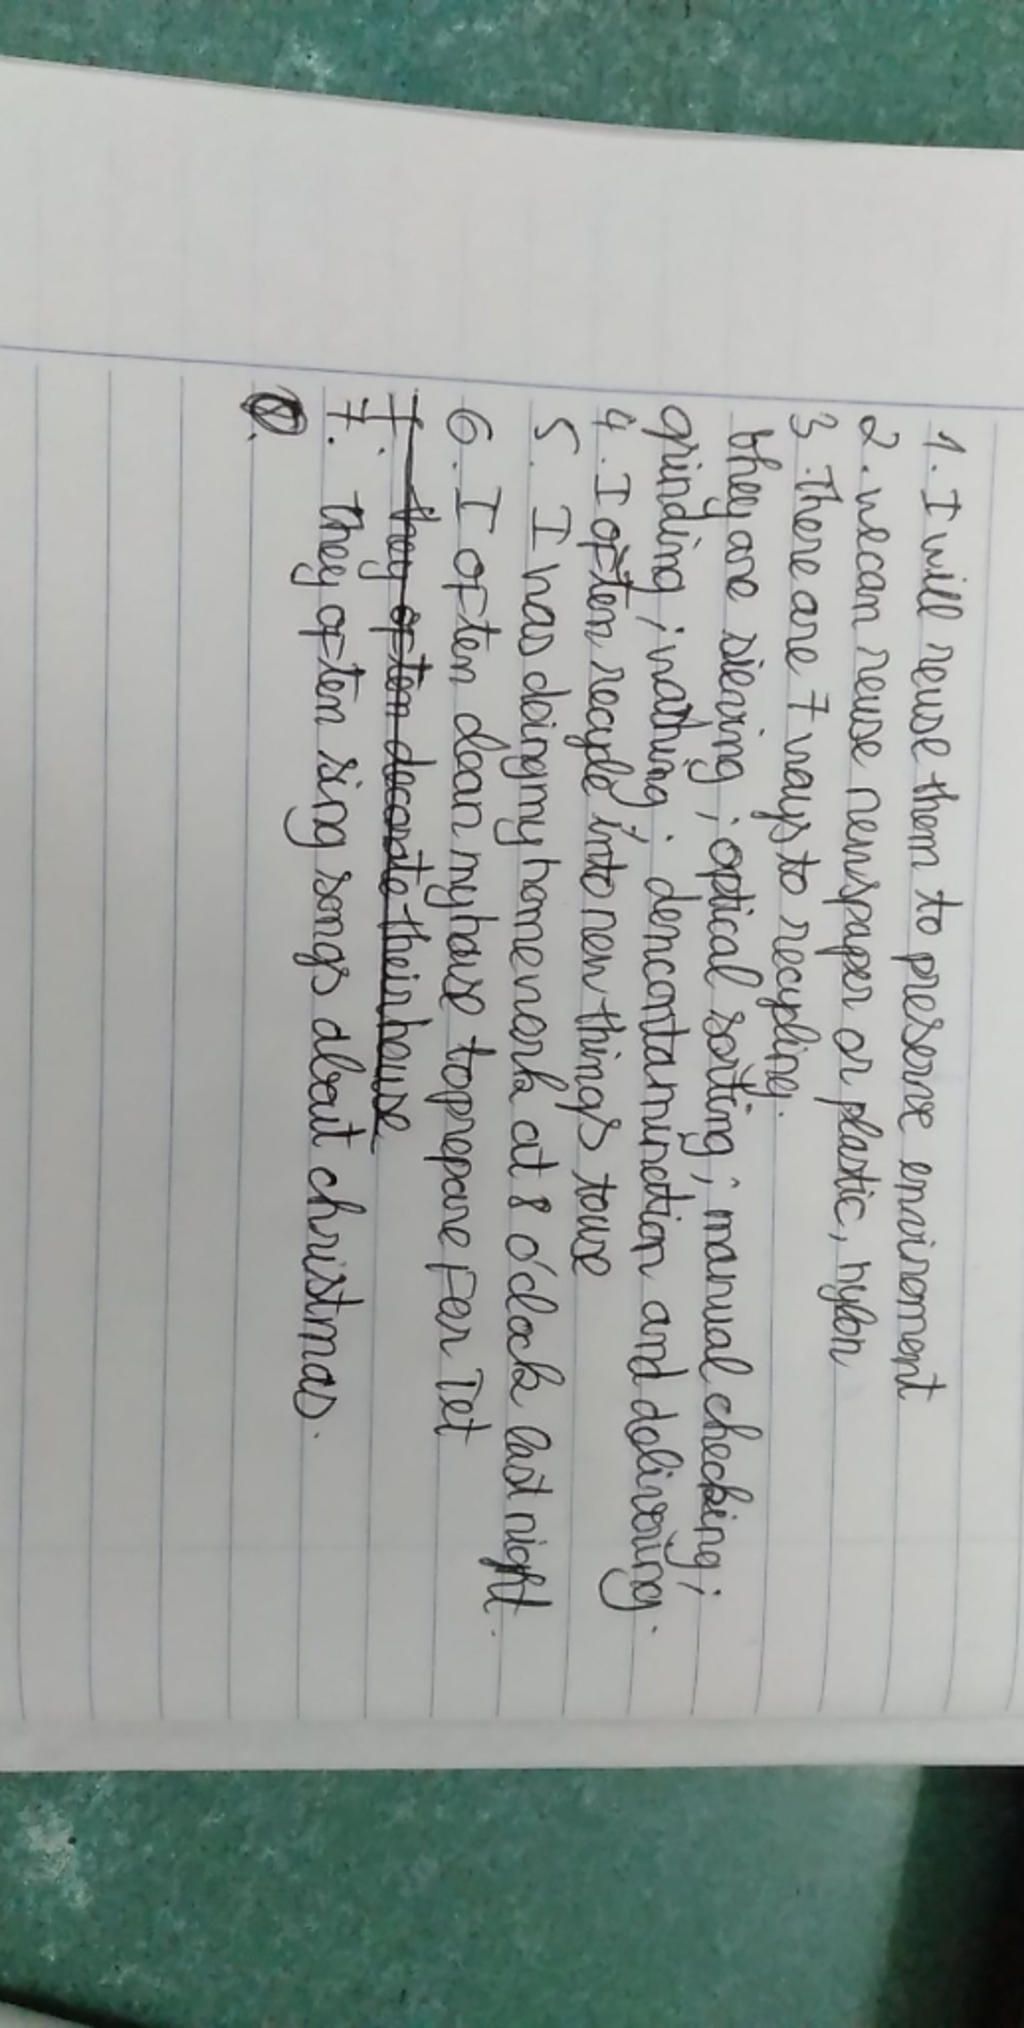 1. I will reuse them to preserve envirement
2. we can reuse newspaper or plastic, nylon
3. There are 7 ways to recycling.
they are sieving; optical sorting; manual checking;
grinding; washing; dencontamination and delivering.
4. I often recycle into new things to use
5. I was doing my homework at 8 o'clock last night.
6. I often clean my house to prepare For Tet
7. they often decorate their house
7. they often sing songs about christmas.